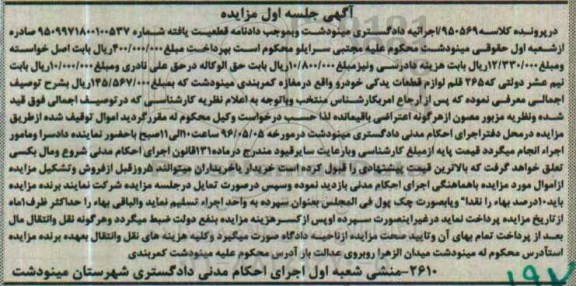 آگهی جلسه اول مزایده
درپرونده کلاسه ۹۵۰۵۶۹/اجرائیه دادگستری مینودشت وبموجب دادنامه قطعیت یافته شماره ۹۵۰۹۹۷۱۸۰۰۱۰۰۵۳۷ صادره
ازشعبه اول حقوقی مینودشت محکوم علیه مجتبی سرایلو محکوم است بپرداخت مبلغ ۴۰۰/۰۰۰/۰۰۰ریال بابت اصل خواسته
ومبلغ ۱۲/۳۳۰/۰۰۰ریال بابت هزینه دادرسی ونیزمبلغ ۱۰/۸۰۰/۰۰۰ریال بابت حق الوکاله درحق علی نادری ومبلغ ۱۰/۰۰۰/۰۰۰ریال بابت
نیم عشر دولتی که ۲۶۵ قلم لوازم قطعات یدکی خودرو واقع درمغازه کمربندی مینودشت که بمبلغ ۱۴۵/۵۶۷/۰۰۰ریال بشرح توصیف
اجمالی معرفی نموده که پس از ارجاع امربکارشناس منتخب وباتوجه به اعلام نظریه کارشناسی که درتوصیف اجمالی فوق قید
شده ونظریه مزبور مصون ازهرگونه اعتراضی باقیمانده لذا حسب درخواست وکیل محکوم له مقررگردید اموال توقیف شده ازطریق
مزایده درمحل دفتراجرای احکام مدنی دادگستری مینودشت درمورخه ۹۶/۰۵/۰۵ ساعت ۱۰الی ۱۱صبح باحضور نماینده دادسرا ومامور
اجراء انجام میگردد قیمت پایه ازمبلغ کارشناسی وبارعایت سایرقیود مندرج درماده ۱۳۱قانون اجرای احکام مدنی شروع ومال بکسی
تعلق خواهد گرفت که بالاترین قیمت پیشنهادی را قبول کرده است خریدار یاخریداران میتوانند ۵روزقبل ازفروش وتشکیل مزایده
ازاموال مورد مزایده باهماهنگی اجرای احکام مدنی بازدید نموده وسپس درصورت تمایل درجلسه مزایده شرکت نمایند برنده مزایده
باید ۱۰درصد بهاء را نقدا" ویابصورت چک پول فی المجلس بعنوان سپرده به واحد اجراء تسلیم نماید والباقی بهاء را حداکثر ظرف ۱ماه
ازتاریخ مزایده پرداخت نماید درغیراینصورت سپرده اوپس ازکسرهزینه مزایده بنفع دولت ضبط میگردد وهرگونه نقل وانتقال مال
بعد از پرداخت تمام بهای آن وتایید صحت مزایده ازناحیه دادگاه صورت میگیرد وکلیه هزینه های نقل وانتقال بعهده برنده مزایده
است آدرس محکوم له مینودشت میدان الزهرا روبروی عدالت بار آدرس محکوم علیه مینودشت کمربندی
۲۶۱۰-منشی شعبه اول اجرای احکام مدنی دادگستری شهرستان مینودشت